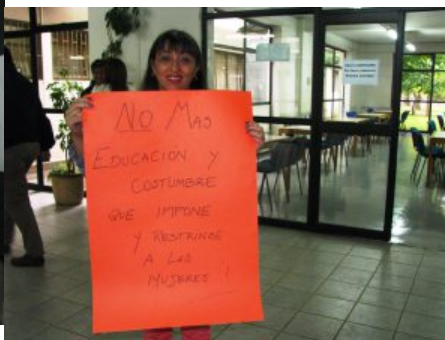 NO MAS
EDUCACION Y
COSTUMBRE
QUE IMPONE
Y RESTRINGE
A LAS
MUJERES !!